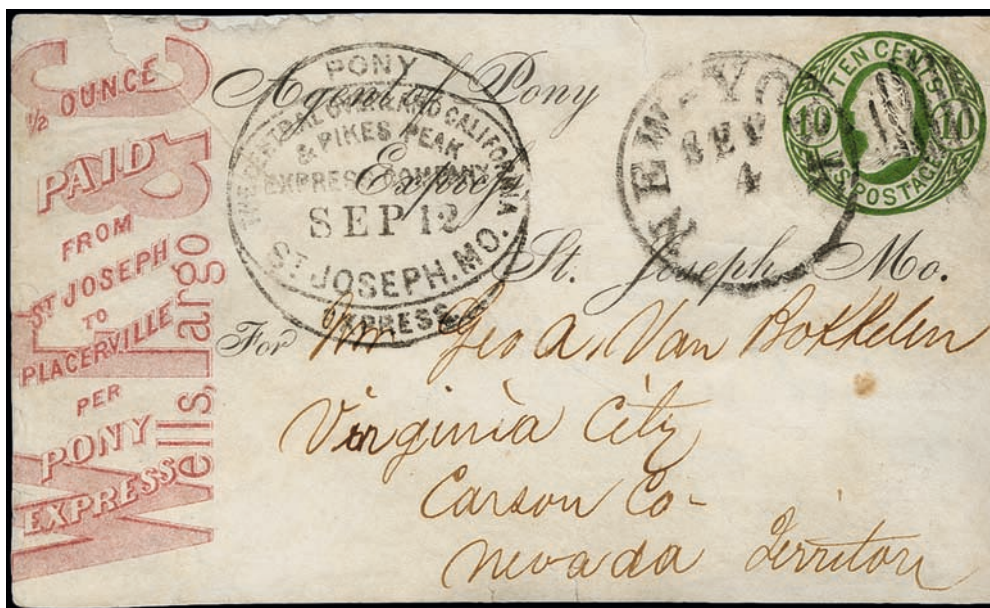 ½ OUNCE
PAID
FROM
ST JOSEPH
TO
PLACERVILLE
PER
PONY
EXPRESS
W. F. & Co
Wells, Fargo
PONY
THE CENTRAL OVERLAND CALIFORNIA
& PIKES PEAK
EXPRESS COMPANY
SEP 12
ST JOSEPH. MO.
EXPRESS
NEW-YO
SEP
4
TEN CENTS
10 10
U.S POSTAGE
Agent of Pony
Express
St. Joseph, Mo.
For Mr Geo A. Van Bokkelen
Virginia City
Carson Co-
Nevada Territory